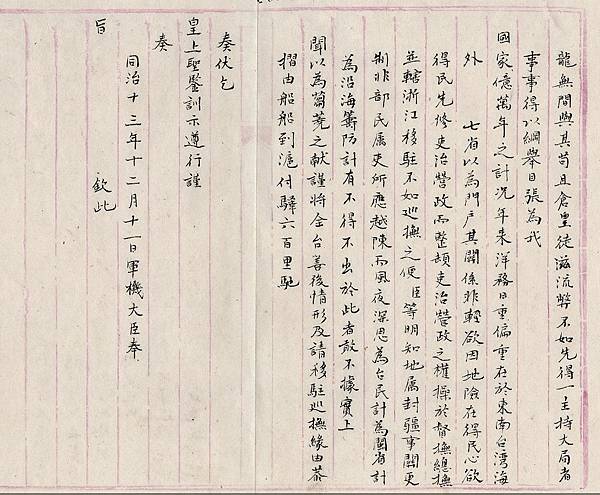 龍無間與其苟且倉皇徒滋流弊不如先得一主持大局者
事事得以綱舉目張為我
國家億萬年之計況年来洋務日重偏重在於東南台湾海
外 七省以為門户其関係非輕欲因地險在得民心欲
得民先修吏治營政而整頓吏治營政之權操於督撫總撫
並轄浙江移駐不如巡撫之便臣等明知地属封疆事関更
制非部民属吏所應越陳而風夜深思為台民計為閩省計
為沿海籌防計有不得不出於此者敢不據實上
聞以為蒭蕘之献謹將全台善後情形及請移駐巡撫緣由恭
摺由船船到滬付驛六百里馳
奏伏乞
皇上聖鑒訓示遵行謹
奏
同治十三年十二月十一日軍機大臣奉
旨
欽此